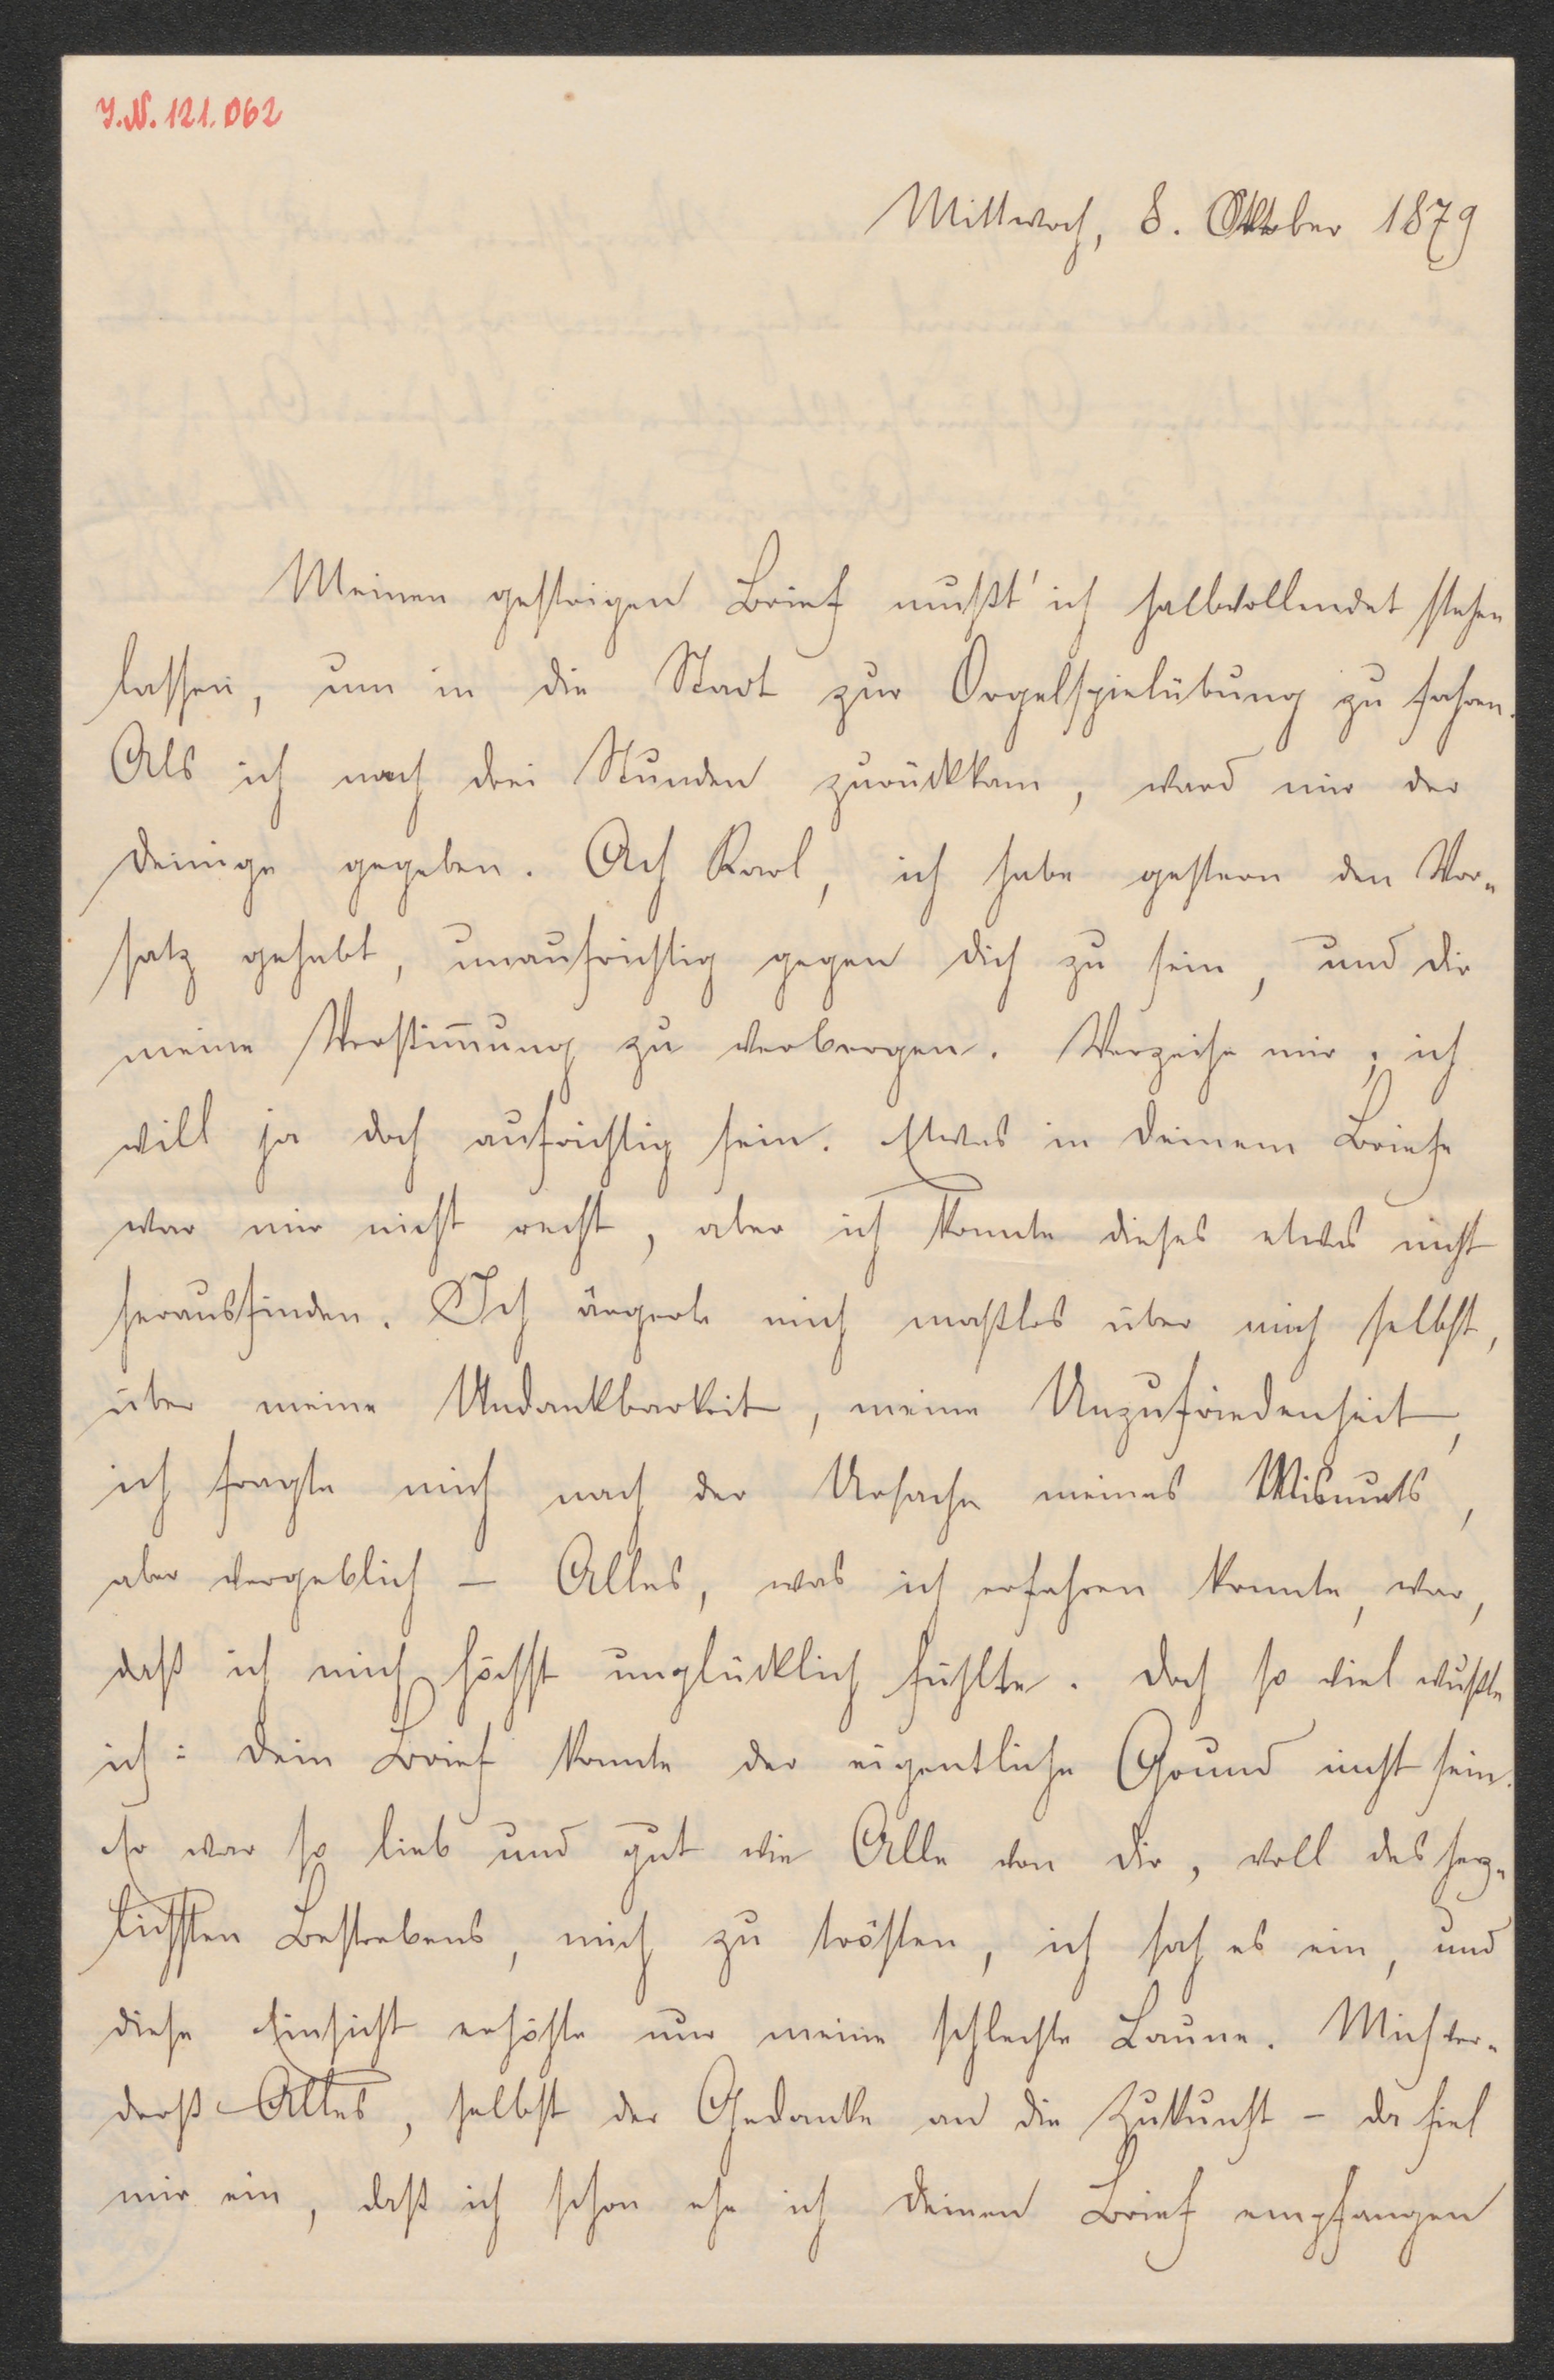 J.N. 121.062
Mittwoch, 8. Oktober 1879
Meinen gestrigen Brief mußt' ich halbvollendet stehen
lassen, um in die Stadt zur Orgelspielübung zu fahren.
Als ich nach drei Stunden zurückkam, ward mir der
Deinige gegeben. Ach Karl, ich habe gestern den Vor-
satz gehabt, unaufrichtig gegen Dich zu sein, und Dir
meine Verstim̄ung zu verbergen. Verzeihe mir; ich
will ja doch aufrichtig sein. Etwas in Deinem Briefe
war mir nicht recht, aber ich konnte dieses etwas nicht
herausfinden. Ich ärgerte mich maßlos über mich selbst,
über meine Undankbarkeit, meine Unzufriedenheit,
ich fragte mich nach der Ursache meines Mismuts,
aber vergeblich – Alles, was ich erfahren konnte, war,
daß ich mich höchst unglücklich fühlte. Doch so viel wußte
ich: Dein Brief konnte der eigentliche Grund nicht sein.
Er war so lieb und gut wie Alle von Dir, voll des herz-
lichsten Bestrebens, mich zu trösten, ich sah es ein, und
diese Einsicht erhöhte nur meine schlechte Laune. Mich ver-
droß Alles, selbst der Gedanke an die Zukunft – da fiel
mir ein, daß ich schon ehe ich Deinen Brief empfangen